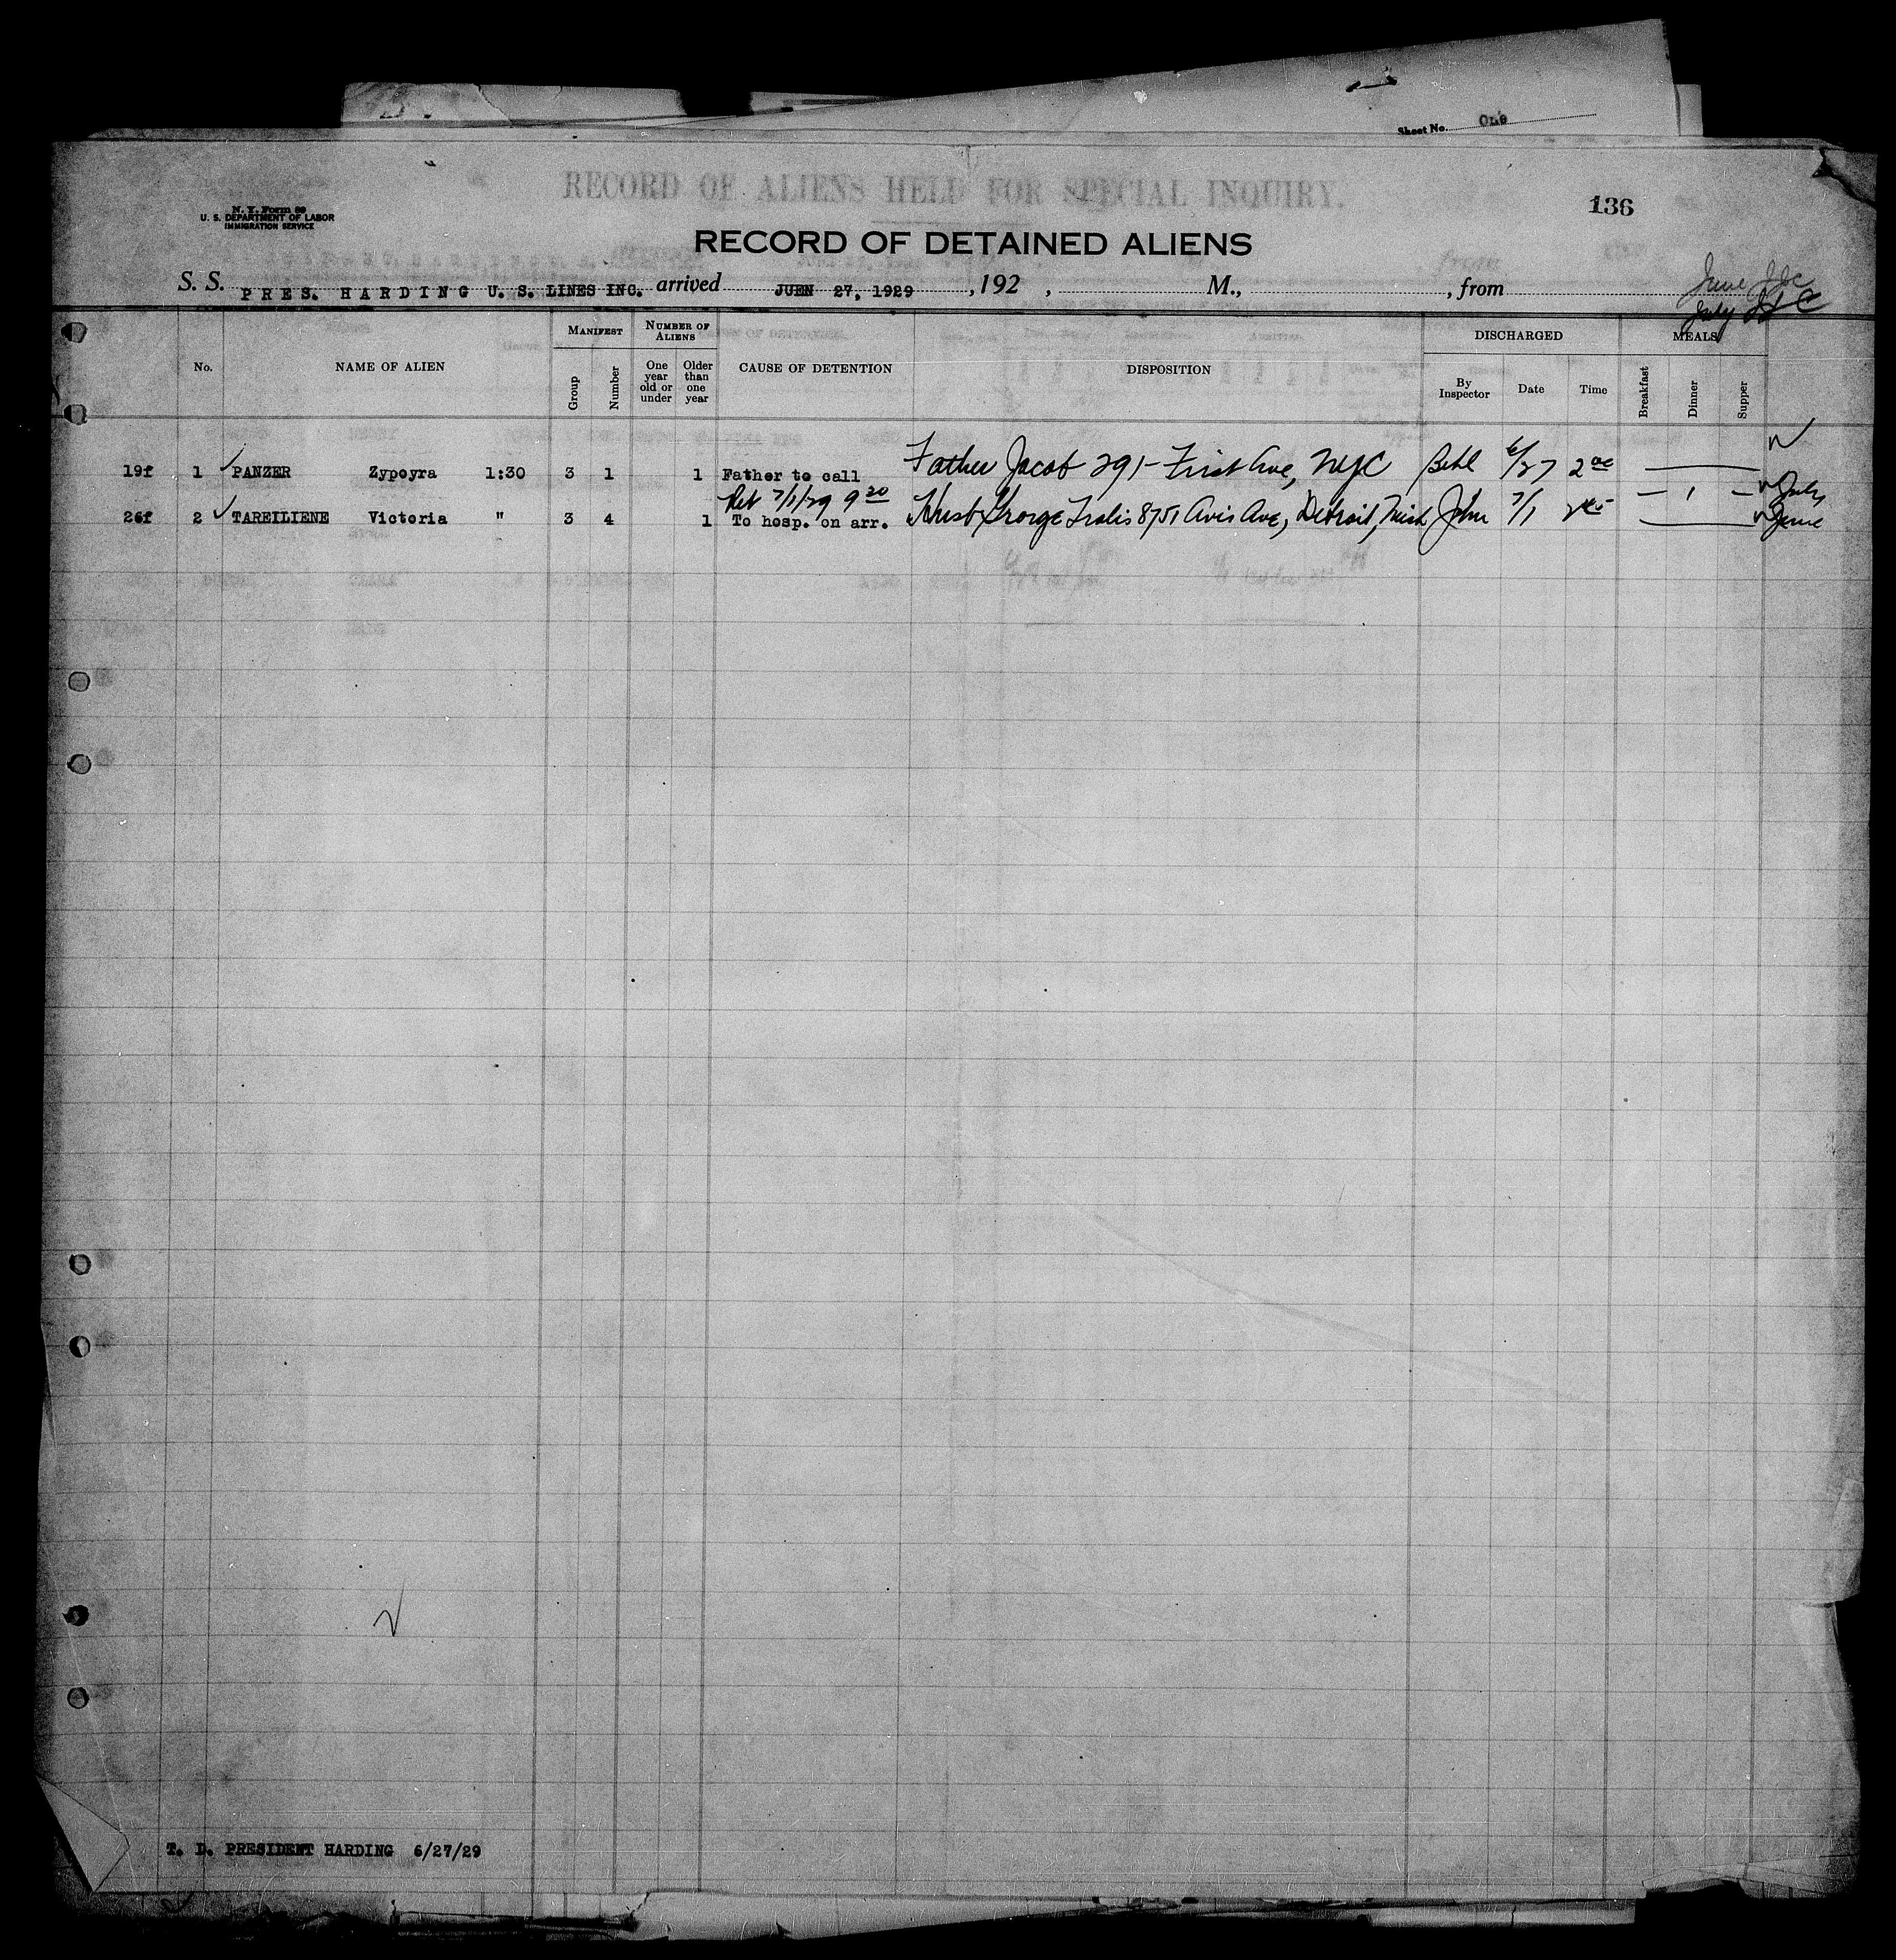 Sheet No. One
RECORD OF ALIENS HELD FOR SPECIAL INQUIRY.
136
N. Y. Form 89
U. S. DEPARTMENT OF LABOR
IMMIGRATION SERVICE
RECORD OF DETAINED ALIENS
S. S. PRES. HARDING U. S. LINES INC. arrived JUEN 27, 1929 , 192 , M., , from June
July
No. NAME OF ALIEN MANIFEST Group Number NUMBER OF ALIENS One year old or under Older than one year CAUSE OF DETENTION DISPOSITION DISCHARGED By Inspector Date Time MEALS Breakfast Dinner Supper
19f 1 PANZER Zypoyra 1:30 3 1 1 Father to call Father Jacob 291 - First Ave, NYC 6/27 2 00
Ret 7/1/29 9 30 — 1 — July
26f 2 TAREILIENE Victoria " 3 4 1 To hosp. on arr. Husb George 8751 Avis Ave, Detroit, Mich John 7/1 June
T. D. PRESIDENT HARDING 6/27/29